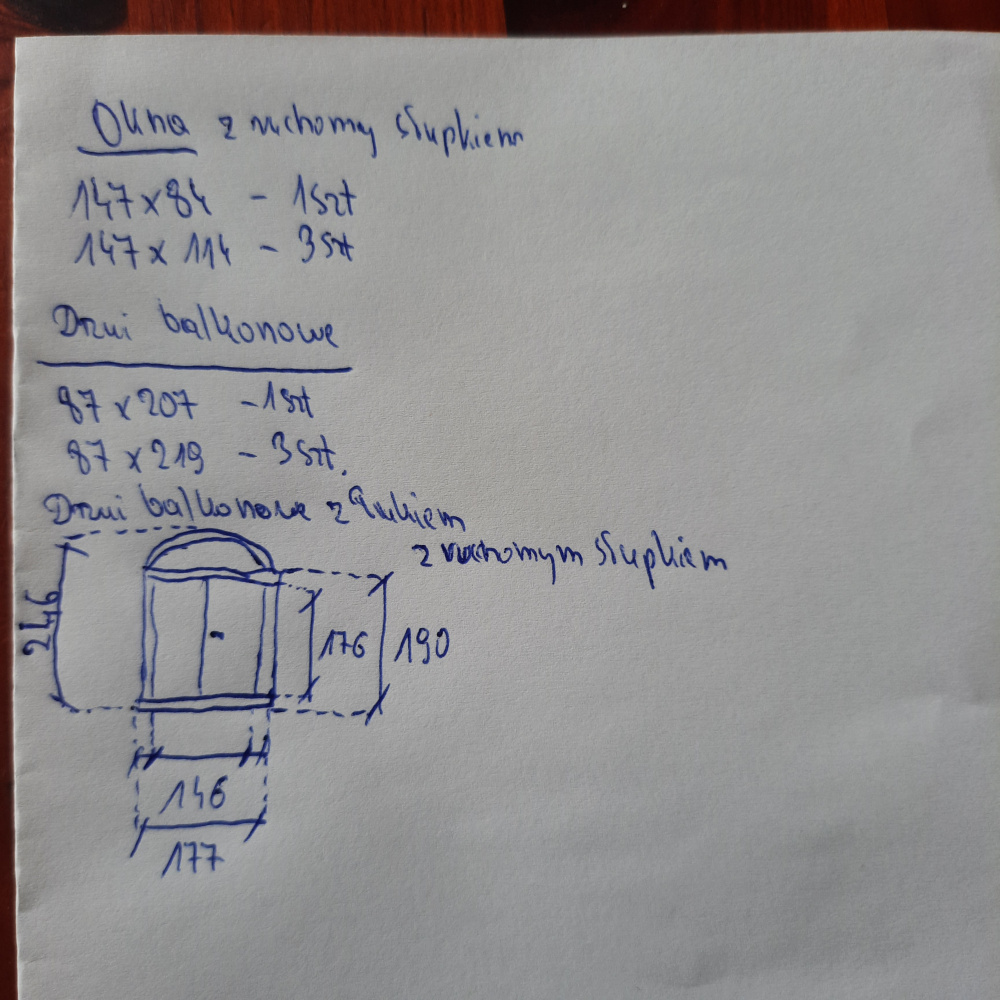 Okna z ruchomy słupkiem
147x84 - 1szt
147x114 - 3szt
Drzwi balkonowe
87x207 - 1szt
87x219 - 3szt.
Drzwi balkonowe z łukiem
z ruchomym słupkiem
246
176
190
146
177